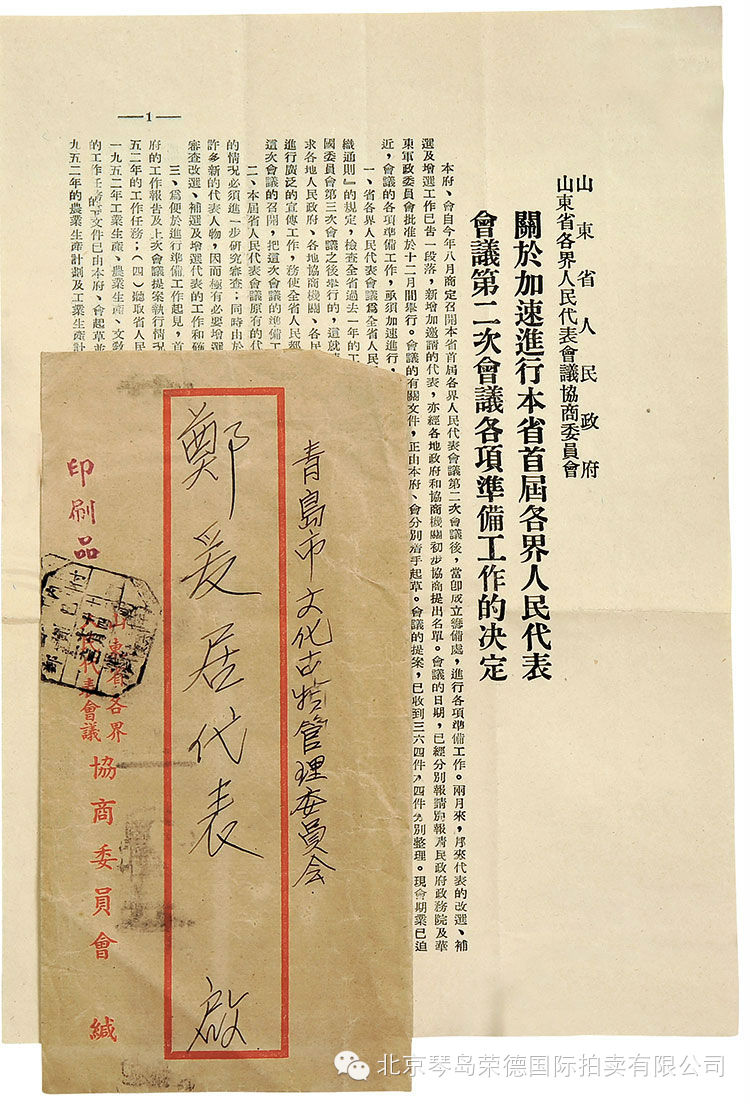 山東省人民政府
山東省各界人民代表會議協商委員會
關於加速進行本省首屆各界人民代表
會議第二次會議各項準備工作的决定
本府、會自今年八月商定召開本省首屆各界人民代表會議第二次會議後，當卽成立籌備處，進行各項準備工作。兩月來，代表的改選、補
選及增選工作已吿一段落，新增加邀請的代表，亦經各地政府和協商機關初步協商提出名單。會議的日期，已經分別報請政府政務院及華
東軍政委員會批准於十二月間舉行。會議的有關文件，正由本府、會分別着手起草。會議的提案，已收到三六四件，分別整理。現會期業已迫
近，會議的各項準備工作，亟須加速進行，
一、省各界人民代表會議爲全省人民
織通則』的規定，檢查全省過去一年的工
國委員會第三次會議之後舉行的，這就
求各地人民政府、各地協商機關、各民
進行廣泛的宣傳工作，務使全省人民都
這次會議的召開，把這次會議的準備工
二、本屆省人民代表會議原有的代
的情況必須進一步研究審查；同時由於
許多新的代表人物，因而極有必要增選
審查改選、補選及增選代表的工作和
三、爲便於進行準備工作起見，首
府的工作報告及上次會議提案執行情況
五二年的工作任務；（四）聽取省人民
一九五二年工業生產、農業生產、文敎
的工作任務等文件已由本府、會起草並
九五二年的農業生產計劃及工業生產計
—1—
青島市文化古物管理委員会
鄭爰居代表 啟
印刷品
山東省各界
人民代表會議
協商委員會 緘
北京琴岛荣德国际拍卖有限公司